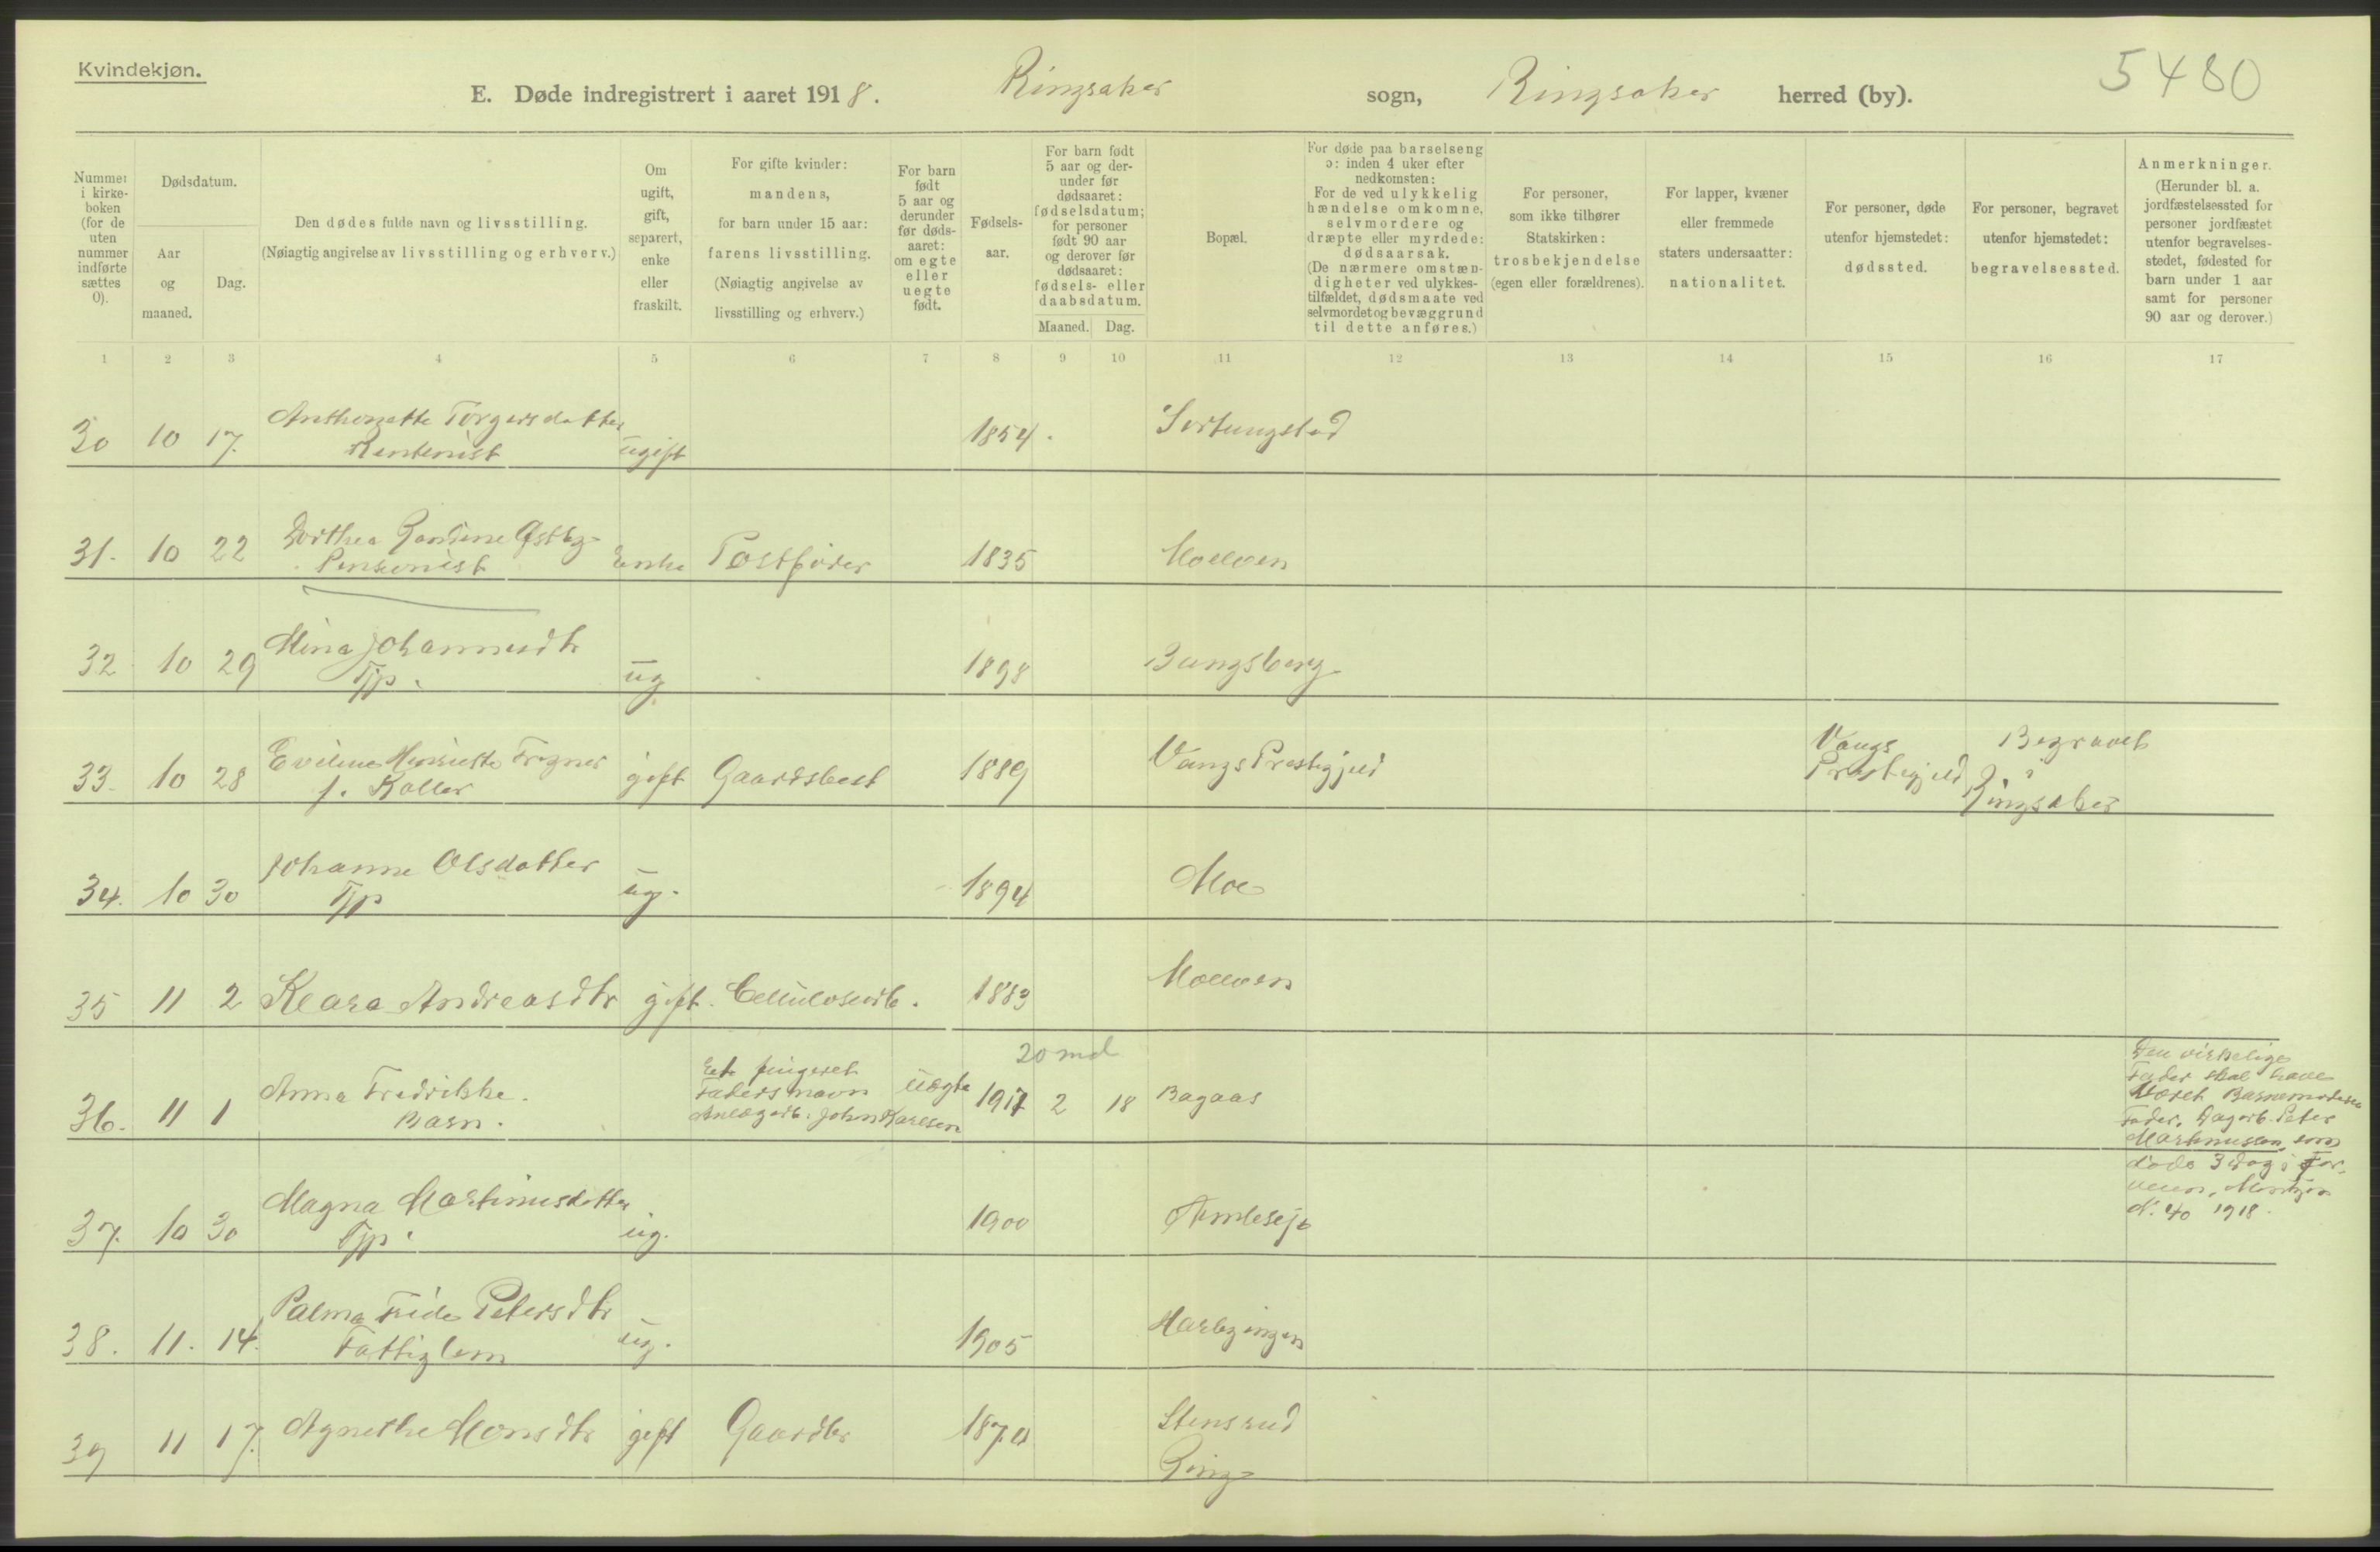 Kvindekjøn.
E. Døde indregistrert i aaret 1918. Ringsaker sogn, Ringsaker herred (by).
5480
Nummer i kirke-boken (for de uten nummer indførte sættes 0).
Dødsdatum.
Aar og maaned.
Dag.
Den dødes fulde navn og livsstilling.
(Nøiagtig angivelse av livsstilling og erhverv.)
Om ugift, gift, separert, enke eller fraskilt.
For gifte kvinder: mandens, for barn under 15 aar: farens livsstilling. (Nøiagtig angivelse av livsstilling og erhverv.)
For barn født 5 aar og derunder før døds-aaret: om egte eller uegte født.
Fødsels-aar.
For barn født 5 aar og der-under før dødsaaret: fødselsdatum; for personer født 90 aar og derover før dødsaaret: fødsels- eller daabsdatum.
Maaned. Dag.
Bopæl.
For døde paa barselseng ɔ: inden 4 uker efter nedkomsten: For de ved ulykkelig hændelse omkomne, selvmordere og dræpte eller myrdede: dødsaarsak. (De nærmere omstæn-digheter ved ulykkes-tilfældet, dødsmaate ved selvmordet og bevæggrund til dette anføres.)
For personer, som ikke tilhører Statskirken: trosbekjendelse (egen eller forældrenes).
For lapper, kvæner eller fremmede staters undersaatter: nationalitet.
For personer, døde utenfor hjemstedet: dødssted.
For personer, begravet utenfor hjemstedet: begravelsessted.
Anmerkninger. (Herunder bl. a. jordfæstelsessted for personer jordfæstet utenfor begravelses-stedet, fødested for barn under 1 aar samt for personer 90 aar og derover.)
1 2 3 4 5 6 7 8 9 10 11 12 13 14 15 16 17
30 10 17. Anthonette Torgersdatter
Rentenist ugift 1854. Sortungstad
31. 10 22 Dorthea Østby
Pensionist Enke Postfører 1835 Moelven
32 10 29 Mina Johannesdtr
Tjp. ug 1898 Bangsberg
33. 10 28 Eveline Henriette Frogner
f. Koller gift Gaardsbest 1889 Vangs Prestegjeld Vangs Prestegjeld Begravet i Ringsaker
34. 10 30 Johanne Olsdatter
Tjp ug. 1894 Moe
35 11 2 Klara Andreasdtr gift. Cellulosearb. 1883 Moelven
20 md
36. 11 1 Anna Fredrikke.
Barn.
Et fingeret
Fadersnavn
Anlægarb. John Karlsen
uægte 1917 2 18 Bagaas
Den virkelige
Fader skal have
været Barnemoderens
Fader, Dagarb. Peter
Martinussen, som
døde 3 dag i For-
veien,
N. 40 1918.
37. 10 30 Magna Martinusdatter
Tjp. ug. 1900
38. 11. 14. Palma Petersdtr
Fattiglem ug. 1905
39 11 17. Agnethe Monsdtr gift Gaardbr 1870 Stensrud
Ring